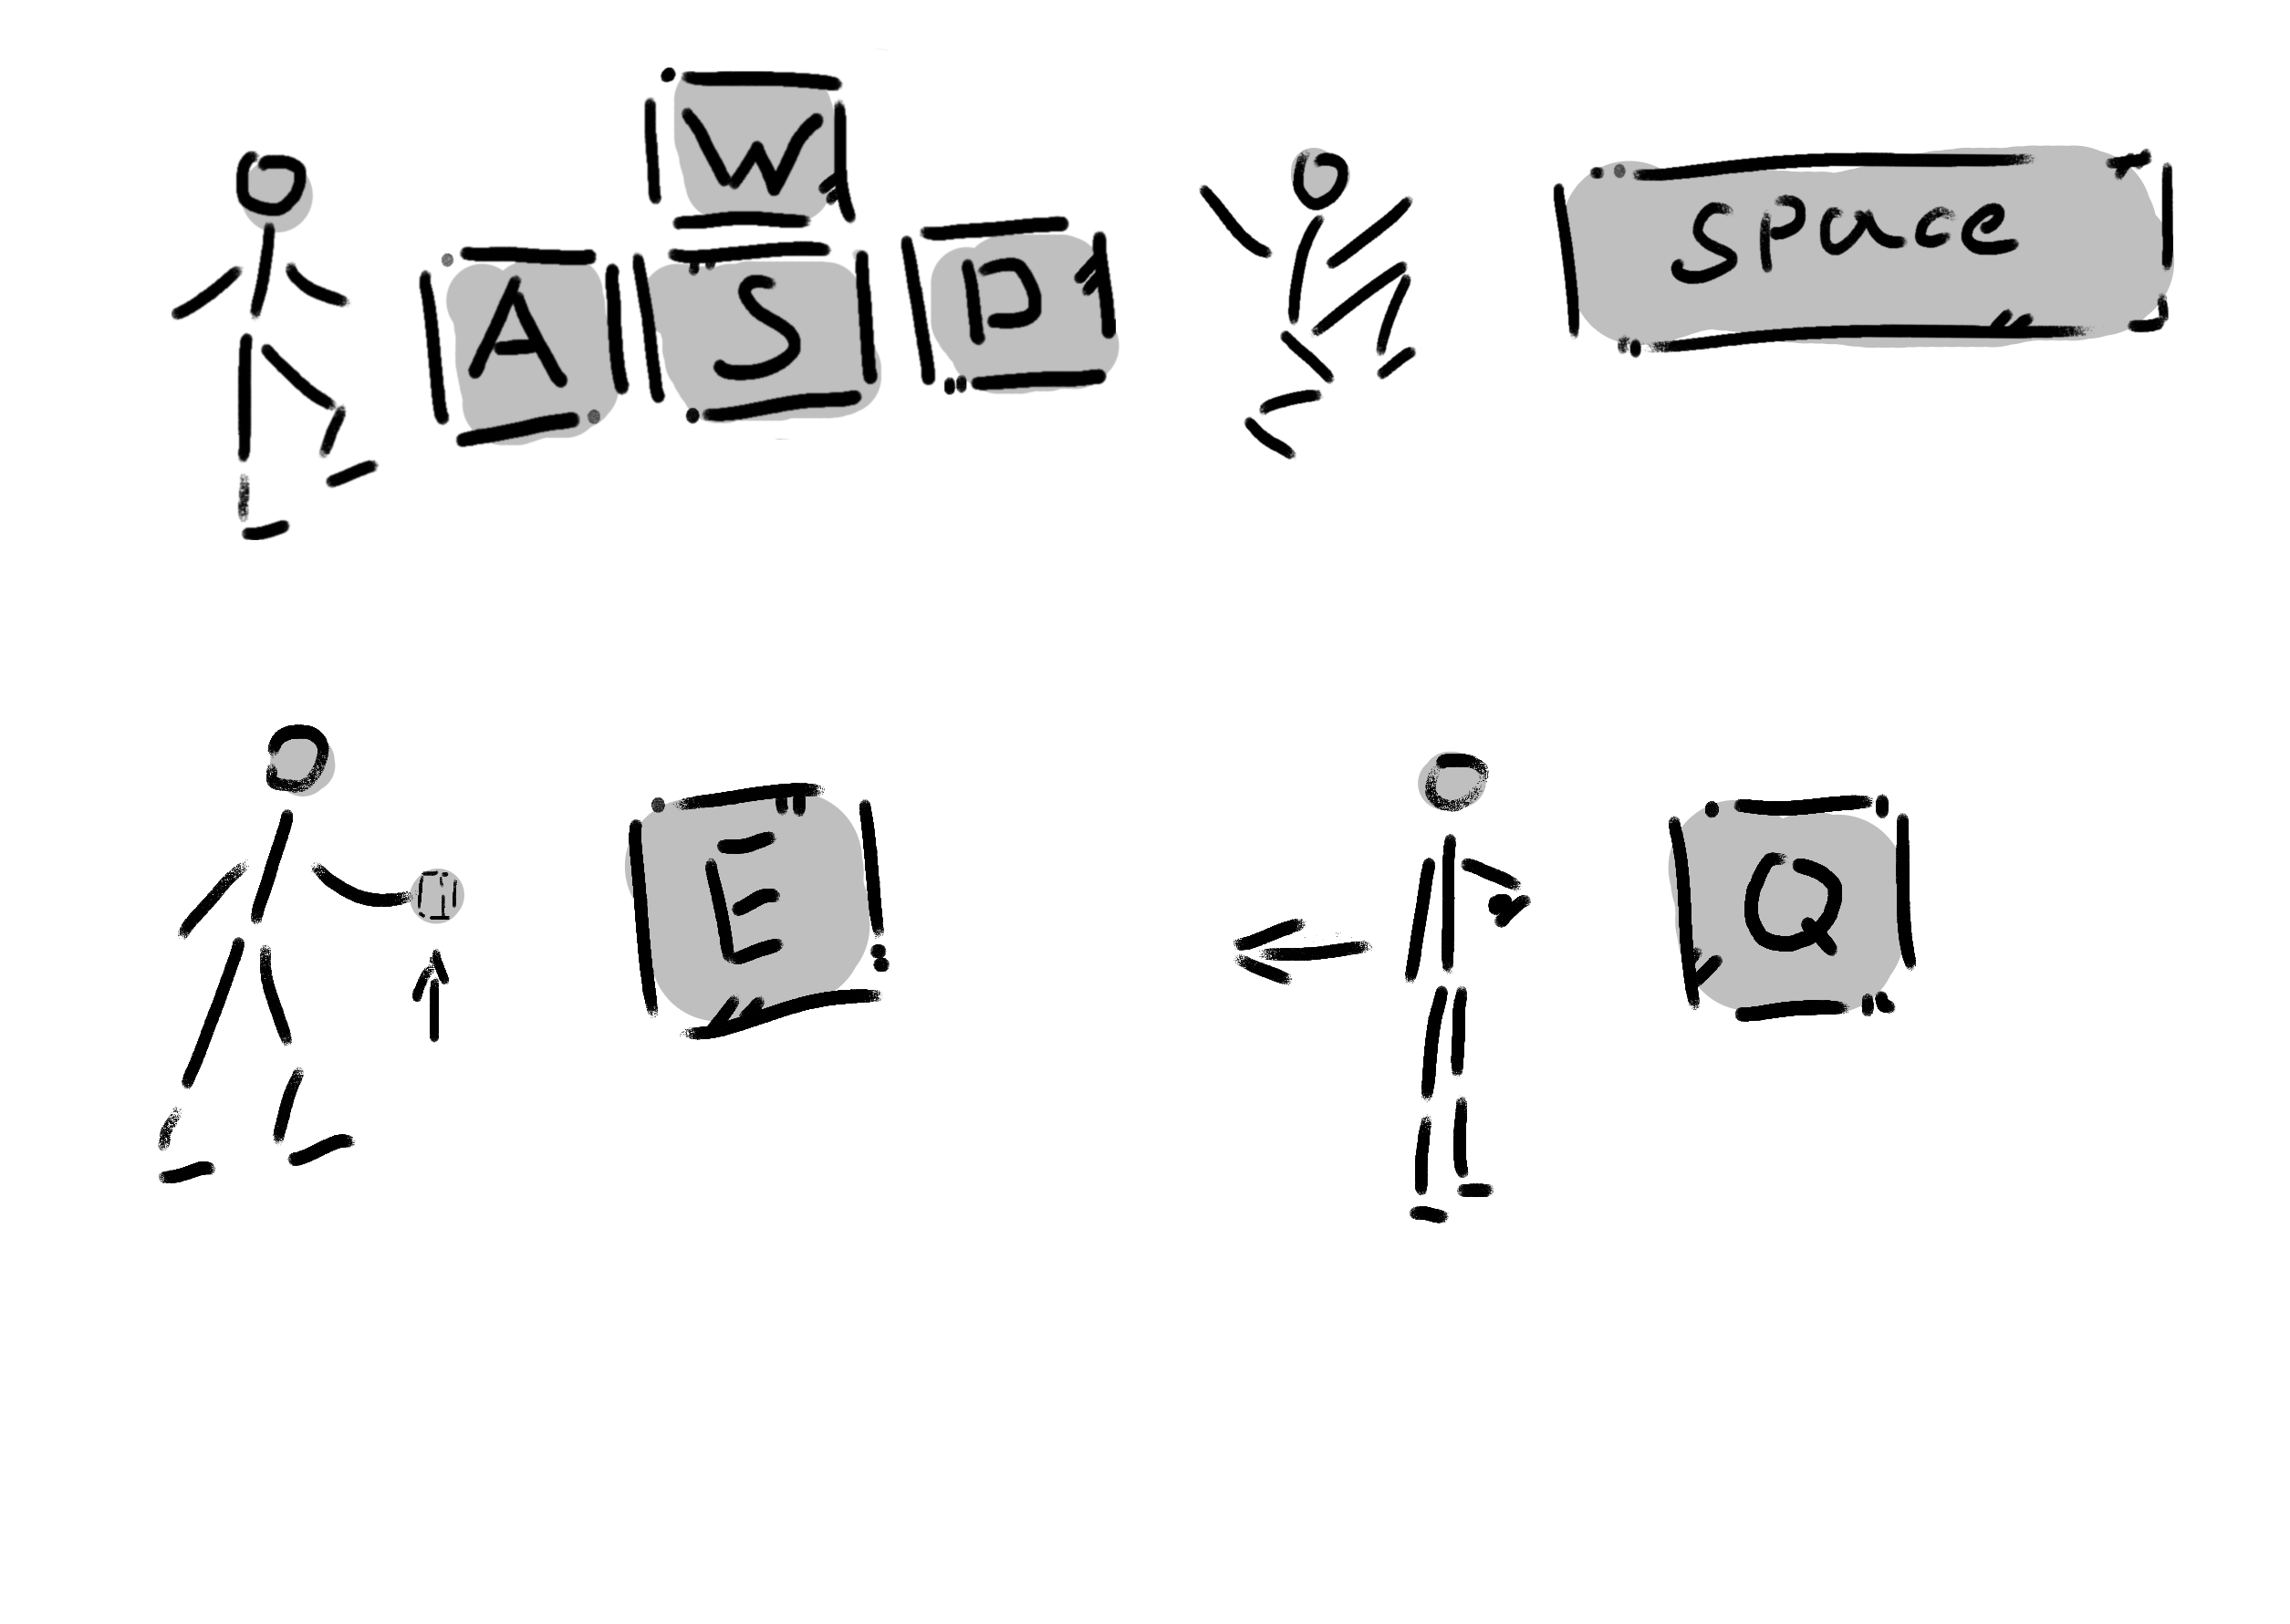 W
A S D
space
E
Q